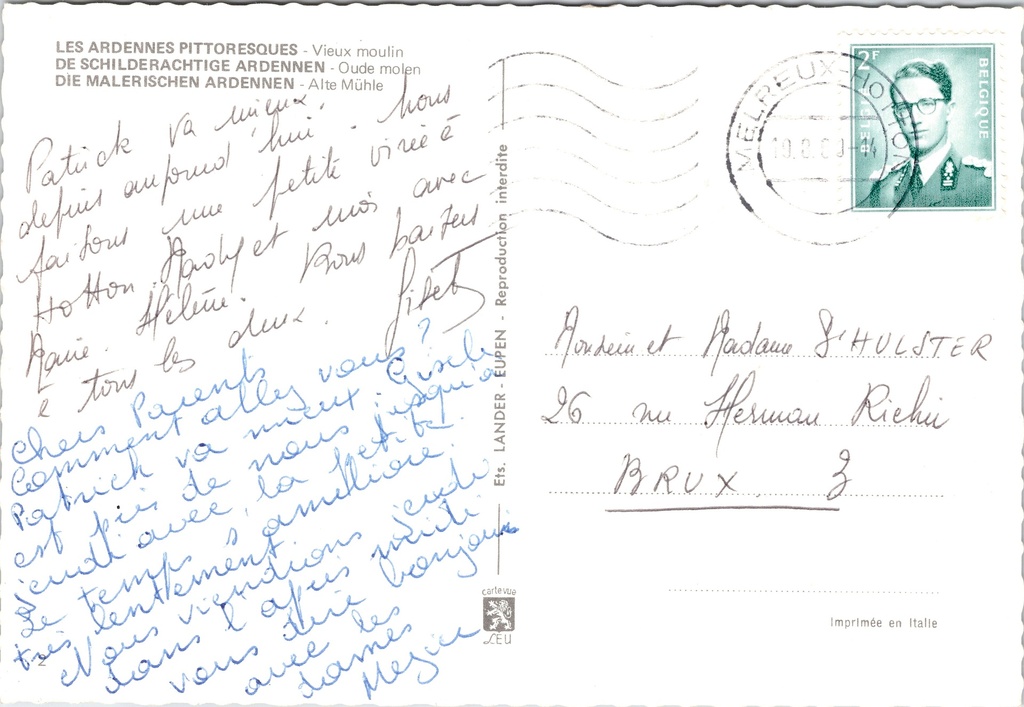 LES ARDENNES PITTORESQUES - Vieux moulin
DE SCHILDERACHTIGE ARDENNEN - Oude molen
DIE MALERISCHEN ARDENNEN - Alte Mühle
Patrick va mieux
depuis aujourd'hui. Nous
faisons une petite virée à
Hotton. et moi avec
Marie. Hélène. Bons baisers
à tous les deux.
Chers Parents
Comment allez vous?
Patrick va mieux. Gisele
est près de nous jusqu'à
jeudi avec la petite.
Le temps s'améliore
très lentement
Nous viendrions jeudi
dans l'après midi
vous dire bonjour
avec les
dames
2
Ets. LANDER - EUPEN - Reproduction interdite
cartevue
LEU
MELREUX-HOTTON
2F
BELGIQUE
BELGIE
Monsieur et Madame S'HULSTER
26 rue Herman Richir
BRUX. 3
Imprimée en Italie